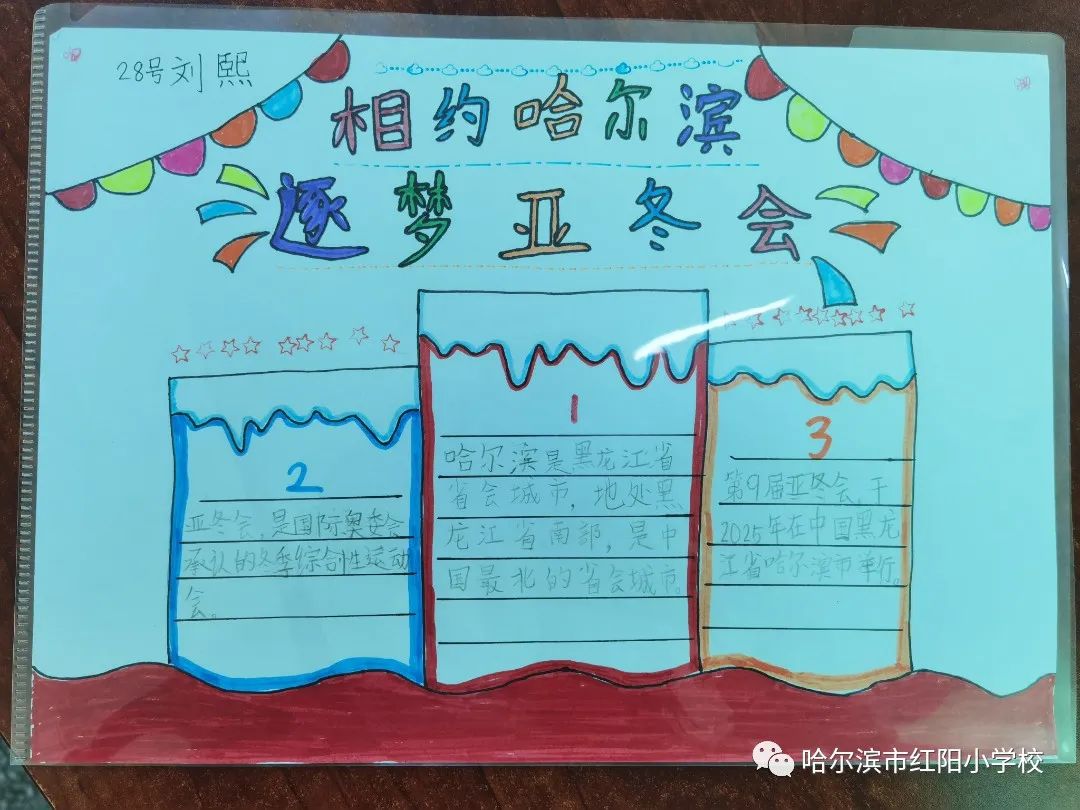 28号刘熙
相约哈尔滨
逐梦亚冬会
2
亚冬会，是国际奥委会
承认的冬季综合性运动
会。
1
哈尔滨是黑龙江省
省会城市，地处黑
龙江省南部，是中
国最北的省会城市。
3
第9届亚冬会，于
2025年在中国黑龙
江省哈尔滨市举行。
哈尔滨市红阳小学校